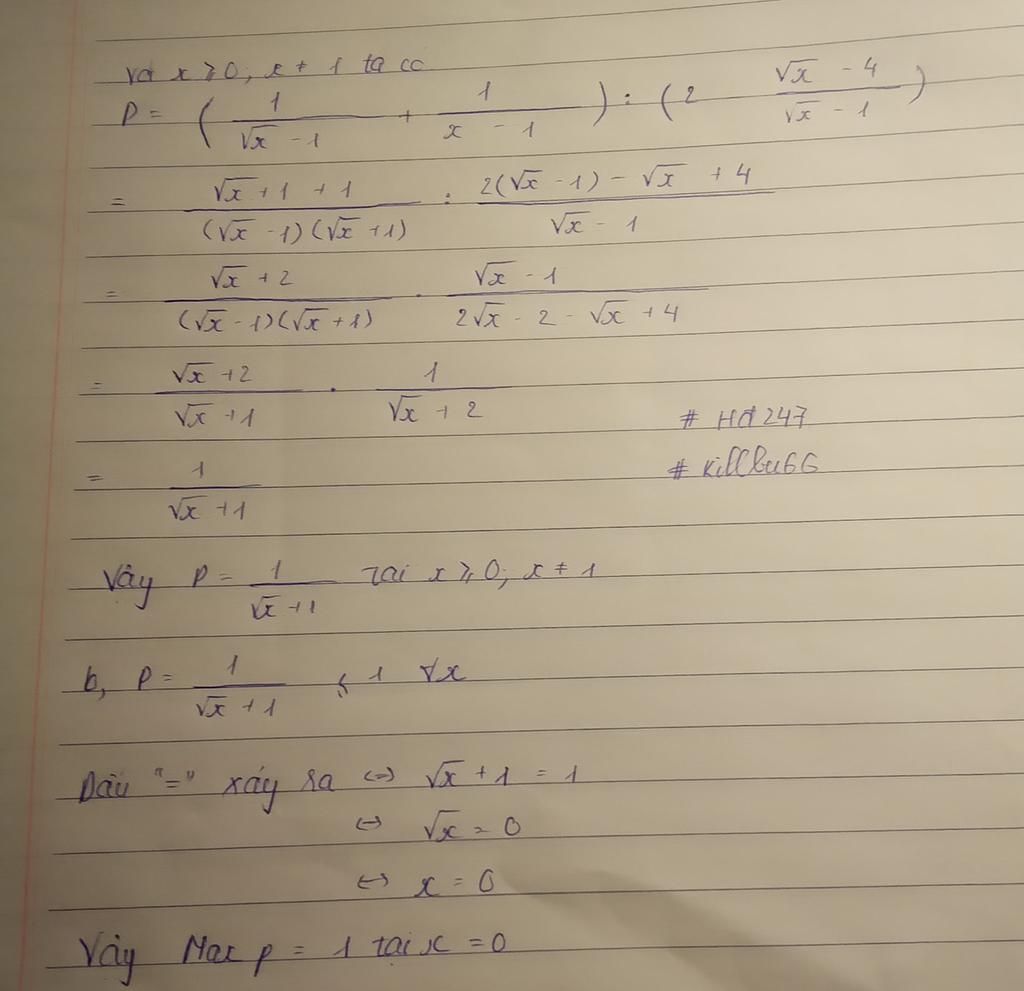 Với x ≥ 0; x ≠ 1 ta có
P = ( 1/(√x - 1) + 1/(x - 1) ) : ( 2 - (√x - 4)/(√x - 1) )
= (√x + 1 + 1)/((√x - 1)(√x + 1)) : (2(√x - 1) - √x + 4)/(√x - 1)
= (√x + 2)/((√x - 1)(√x + 1)) . (√x - 1)/(2√x - 2 - √x + 4)
= (√x + 2)/(√x + 1) . 1/(√x + 2)
# Hd247
= 1/(√x + 1)
# Killbu66
Vậy P = 1/(√x + 1) tại x ≥ 0; x ≠ 1
b, P = 1/(√x + 1) ≤ 1 ∀x
Dấu "=" xảy ra ⇔ √x + 1 = 1
⇔ √x = 0
⇔ x = 0
Vậy Max P = 1 tại x = 0